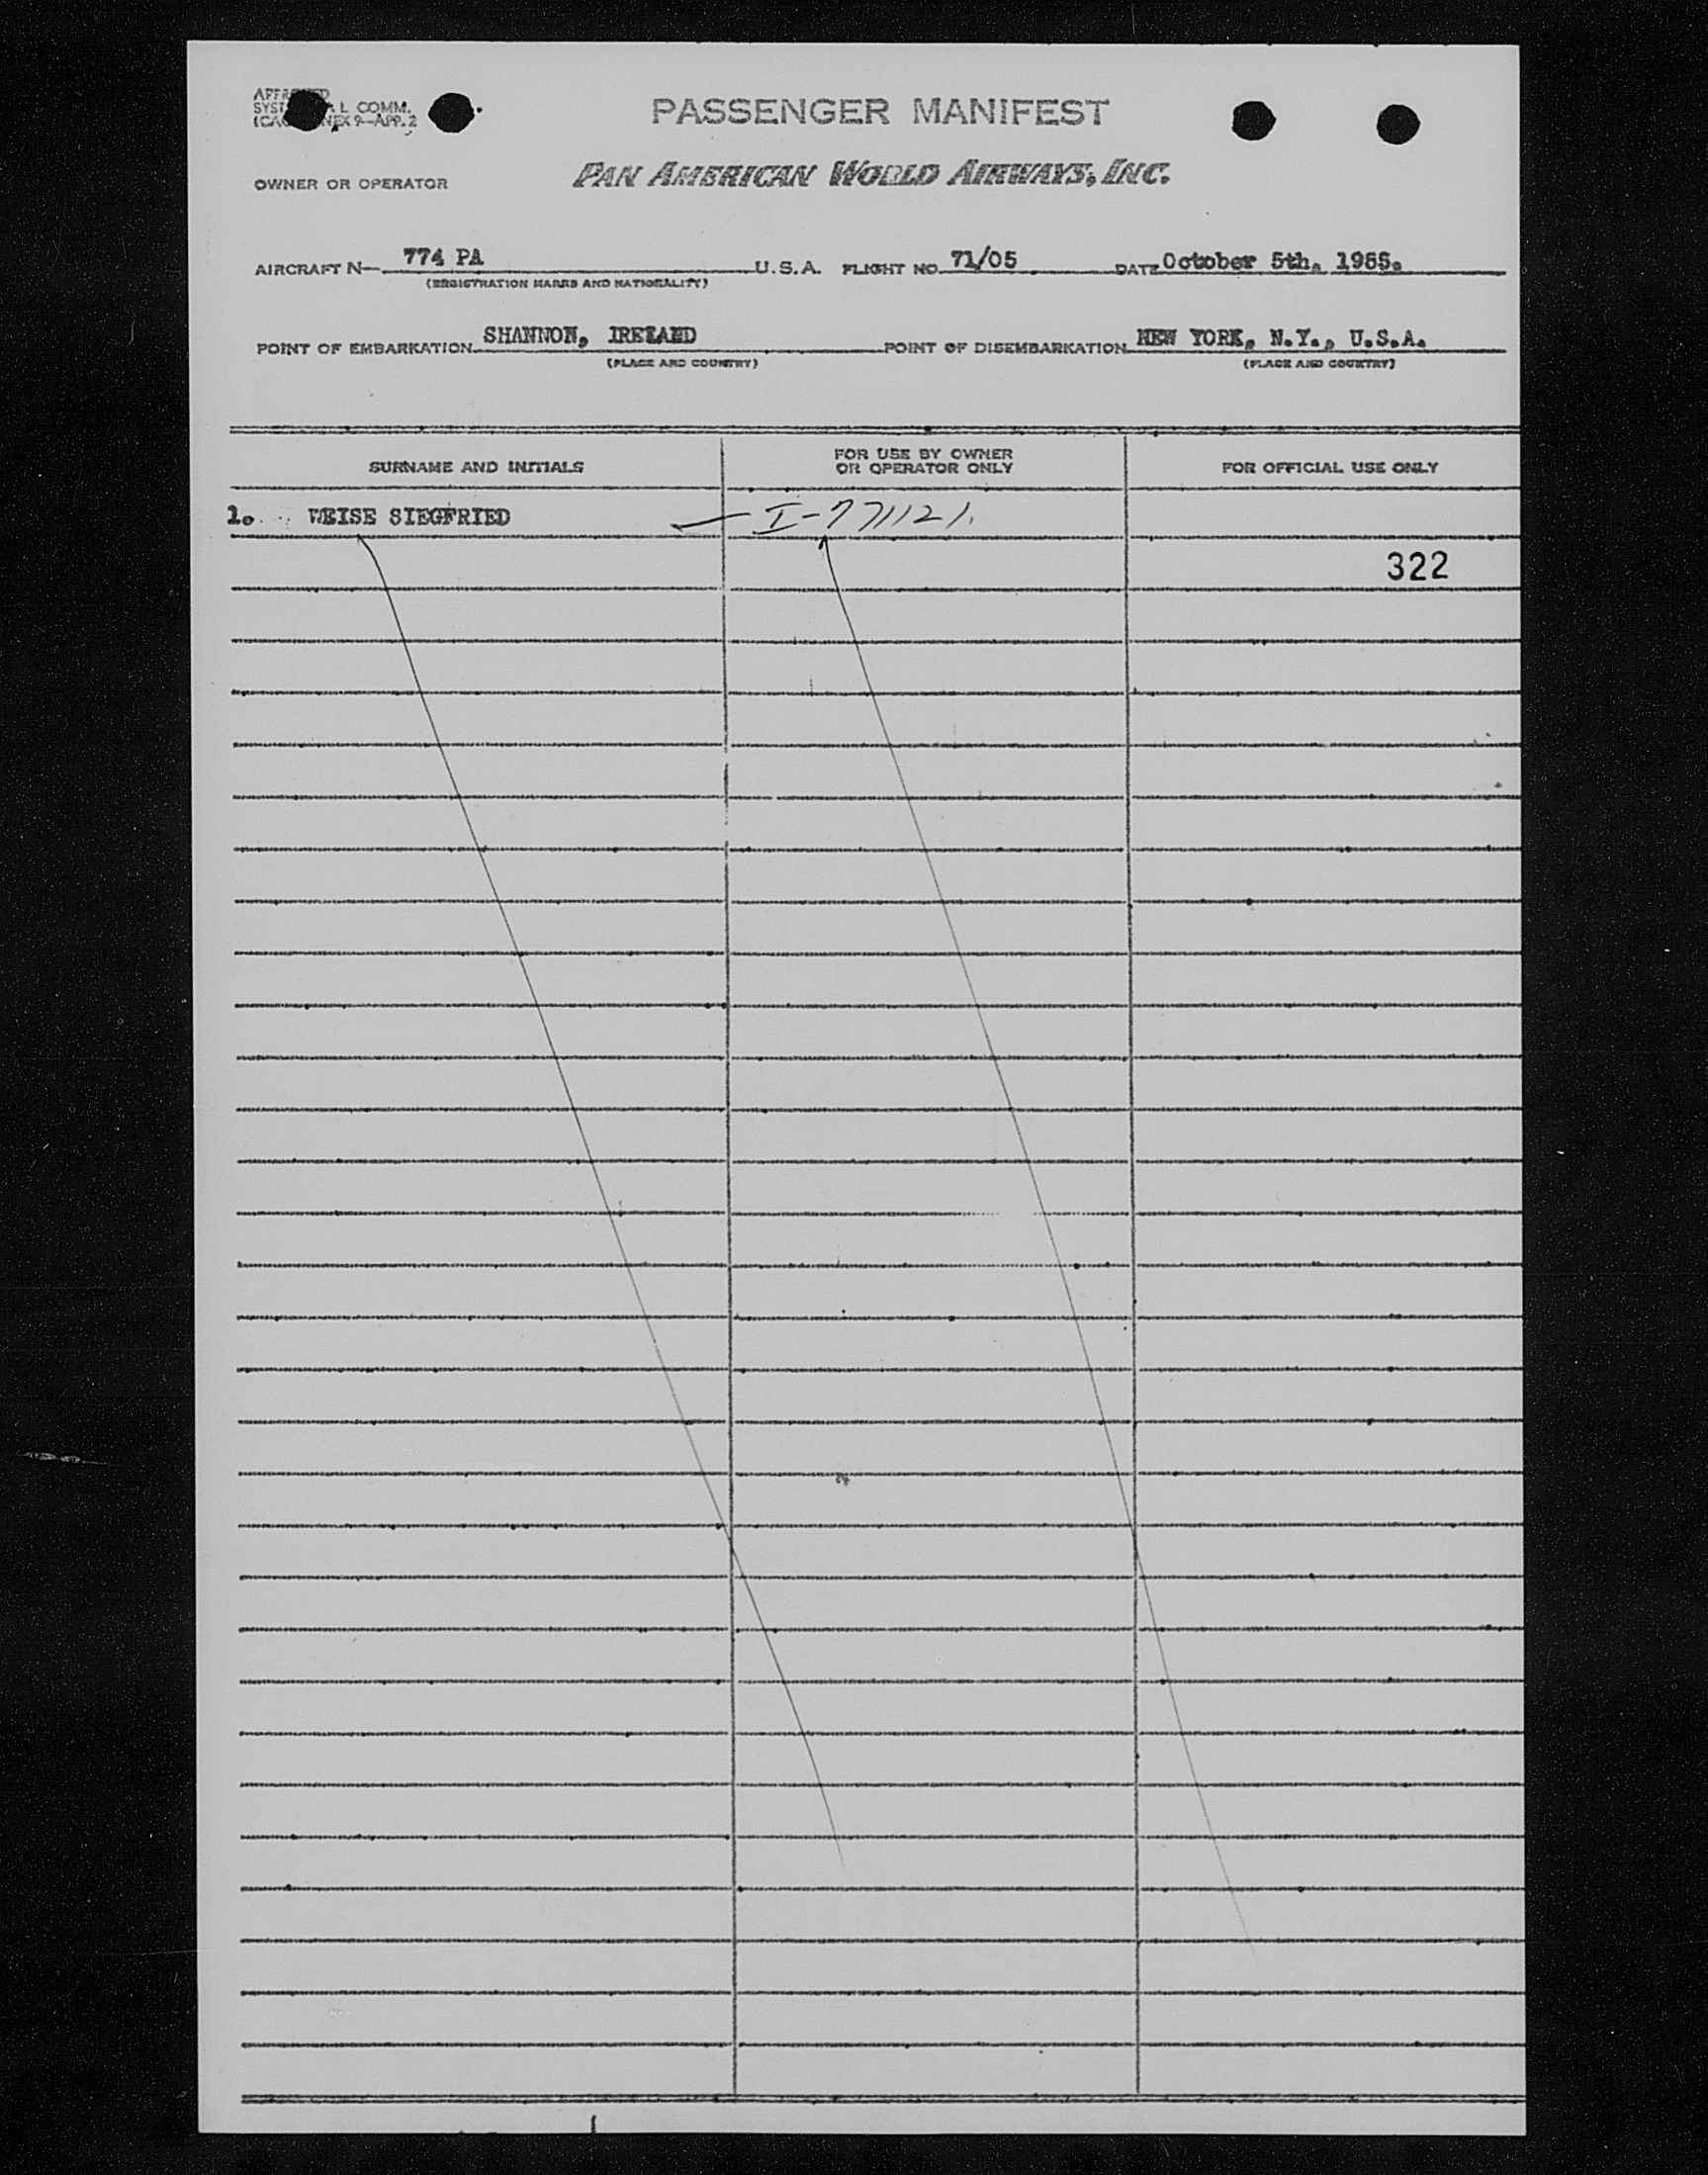 SYST L COMM.
9-APP. 2
PASSENGER MANIFEST
OWNER OR OPERATOR PAN AMERICAN WORLD AIRWAYS, INC.
AIRCRAFT N- 774 PA U.S.A. FLIGHT NO. 71/05 DATE October 5th. 1955.
(REGISTRATION MARKS AND NATIONALITY)
POINT OF EMBARKATION SHANNON, IRELAND POINT OF DISEMBARKATION NEW YORK, N.Y., U.S.A.
(PLACE AND COUNTRY) (PLACE AND COUNTRY)
SURNAME AND INITIALS FOR USE BY OWNER OR OPERATOR ONLY FOR OFFICIAL USE ONLY
1. WEISE SIEGFRIED I-771121.
322